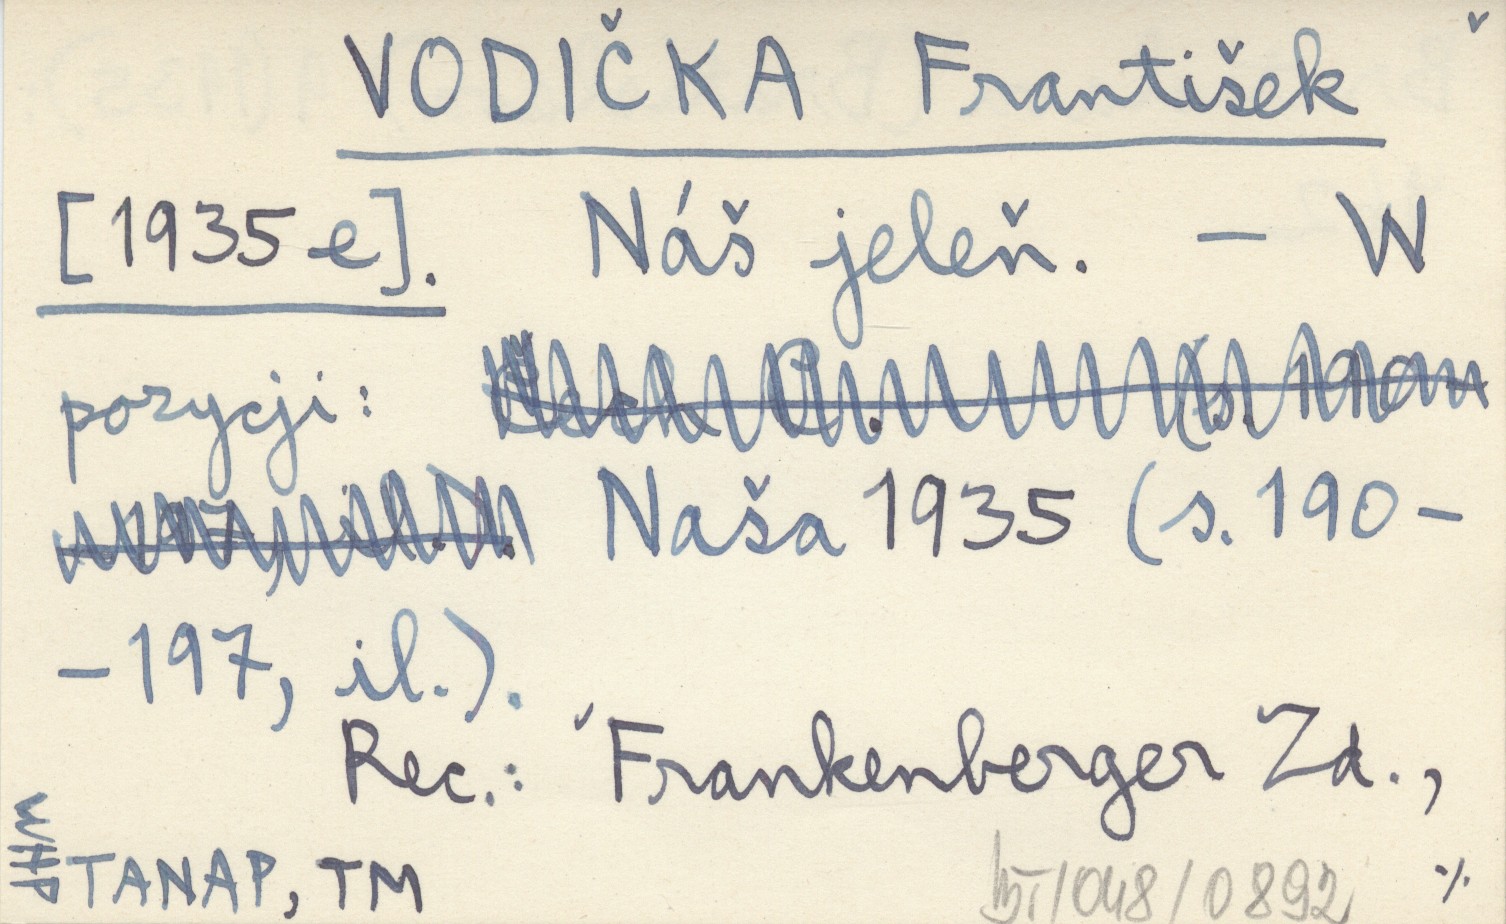 VODIČKA František
[1935 e]. Náš jeleň. — W
pozycji:
(s. 190-
197, il.). Naša 1935 (s. 190-
-197, il.).
Rec.: Frankenberger Zd.,
WHP TANAP, TM
/048/0892 ·/.